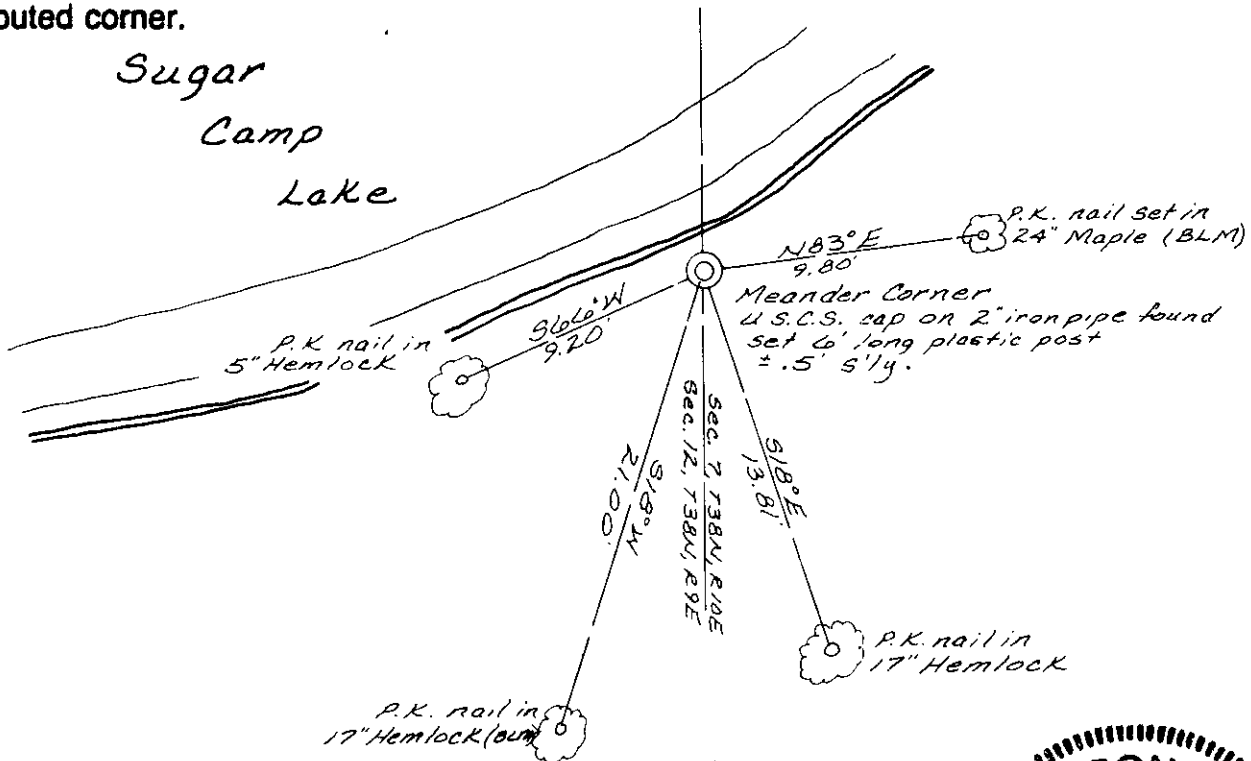 corner.
Sugar
Camp
Lake
P.K. nail set in
24" Maple (BLM)
N83°E
9.80'
Meander Corner
U.S.C.S. cap on 2" iron pipe found
set 6' long plastic post
± .5' S'ly.
S66°W
9.20'
P.K. nail in
5" Hemlock
S18°W
21.00'
Sec. 12, T38N, R9E
Sec. 7, T38N, R10E
S18°E
13.81'
P.K. nail in
17" Hemlock
P.K. nail in
17" Hemlock (BLM)